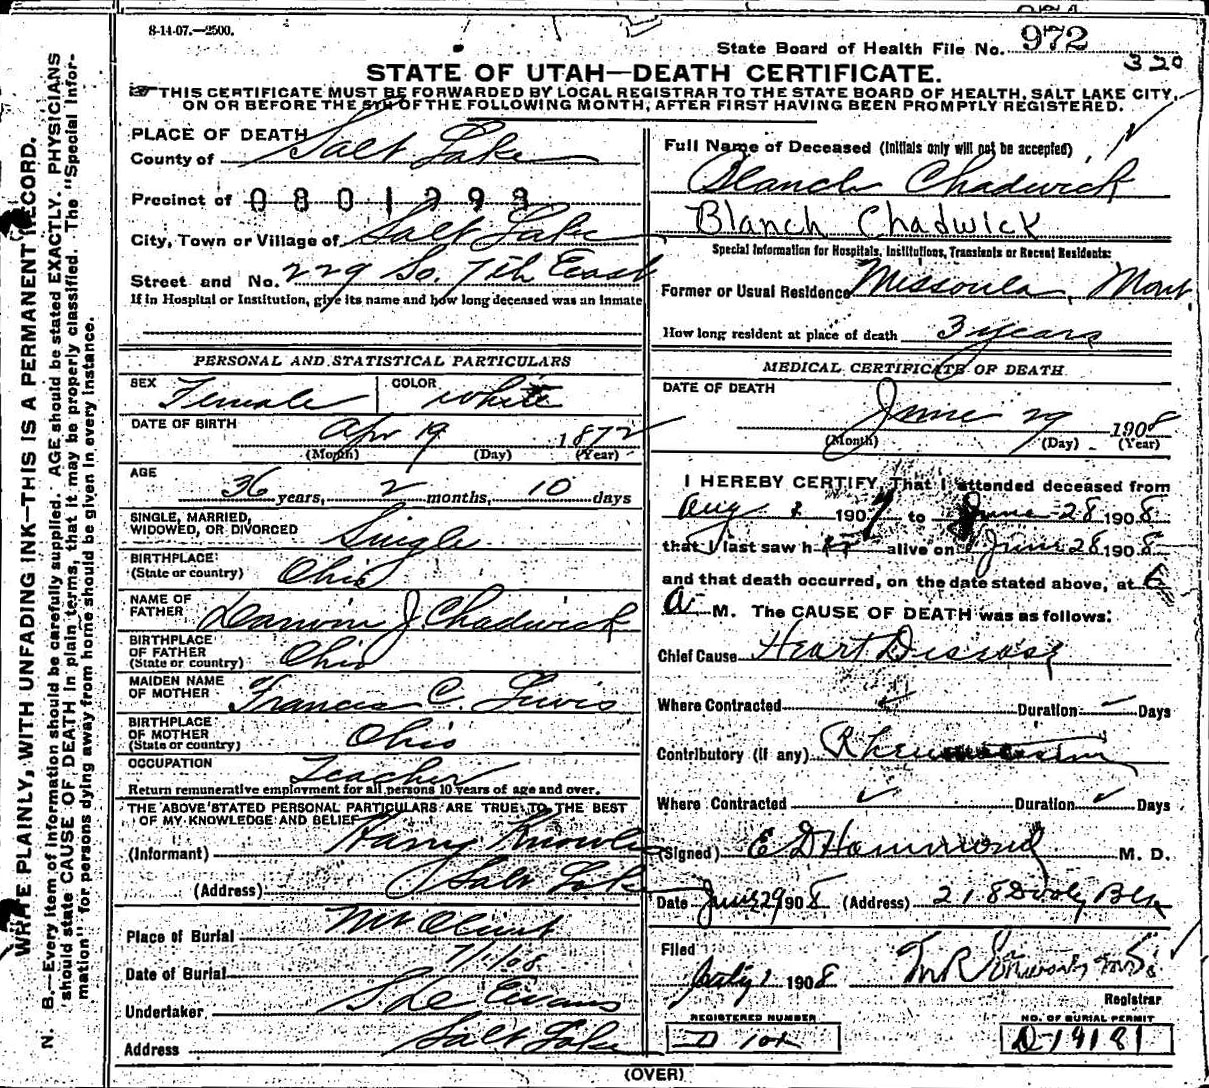 8-14-07.—2500.
State Board of Health File No. 972
320
STATE OF UTAH—DEATH CERTIFICATE.
THIS CERTIFICATE MUST BE FORWARDED BY LOCAL REGISTRAR TO THE STATE BOARD OF HEALTH, SALT LAKE CITY,
ON OR BEFORE THE 5TH OF THE FOLLOWING MONTH, AFTER FIRST HAVING BEEN PROMPTLY REGISTERED.
WRITE PLAINLY, WITH UNFADING INK—THIS IS A PERMANENT RECORD.
N. B.—Every item of information should be carefully supplied. AGE should be stated EXACTLY. PHYSICIANS
should state CAUSE OF DEATH in plain terms, that it may be properly classified. The "Special Infor-
mation" for persons dying away from home should be given in every instance.
PLACE OF DEATH
County of Salt Lake
Precinct of 0801293
City, Town or Village of Salt Lake
Street and No. 229 So. 7th East
If in Hospital or Institution, give its name and how long deceased was an inmate
PERSONAL AND STATISTICAL PARTICULARS
SEX Female COLOR White
DATE OF BIRTH Apr 19 1872
(Month) (Day) (Year)
AGE
36 years, 2 months, 10 days
SINGLE, MARRIED,
WIDOWED, OR DIVORCED Single
BIRTHPLACE
(State or country) Ohio
NAME OF
FATHER J. Chadwick
BIRTHPLACE
OF FATHER
(State or country) Ohio
MAIDEN NAME
OF MOTHER Francis C. Lewis
BIRTHPLACE
OF MOTHER
(State or country) Ohio
OCCUPATION Teacher
Return remunerative employment for all persons 10 years of age and over.
THE ABOVE STATED PERSONAL PARTICULARS ARE TRUE TO THE BEST
OF MY KNOWLEDGE AND BELIEF
(Informant) Harry Knowles
(Address) Salt Lake
Place of Burial Mt Olivet
Date of Burial 7/1/08
Undertaker Evans
Address Salt Lake
Full Name of Deceased (Initials only will not be accepted)
Blanch Chadwick
Blanch Chadwick
Special Information for Hospitals, Institutions, Transients or Recent Residents:
Former or Usual Residence Missoula, Mont.
How long resident at place of death 3 years
MEDICAL CERTIFICATE OF DEATH
DATE OF DEATH
June 29 1908
(Month) (Day) (Year)
I HEREBY CERTIFY, That I attended deceased from
Aug 1907 to June 28 1908
that I last saw h er alive on June 28 1908
and that death occurred, on the date stated above, at 6
a M. The CAUSE OF DEATH was as follows:
Chief Cause Heart Disease
Where Contracted Duration Days
Contributory (if any) Rheumatism
Where Contracted Duration Days
(Signed) E D Hammond M. D.
Date June 29 1908 (Address) 218 Dooly Blk
Filed
July 1 1908
Registrar
REGISTERED NUMBER
NO. OF BURIAL PERMIT
D-14181
(OVER)